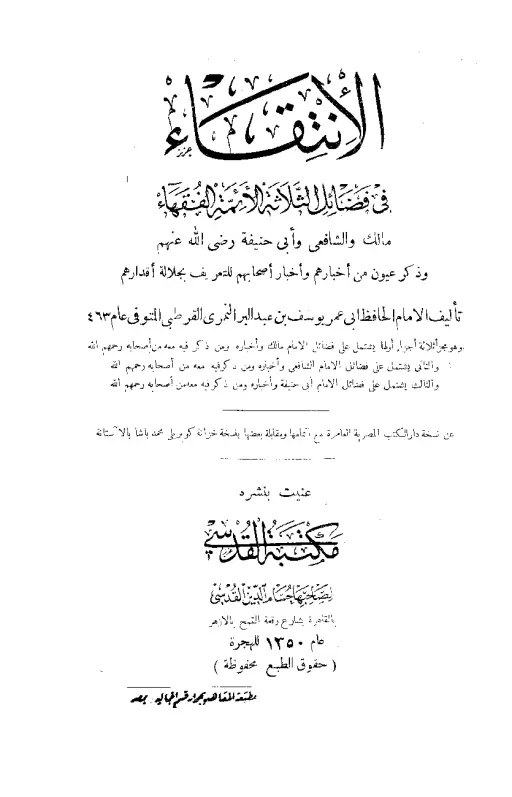 الإنتقاء
في فضائل الثلاثة الأئمة الفقهاء
مالك والشافعى وأبى حنيفة رضى الله عنهم
وذكر عيون من أخبارهم وأخبار أصحابهم للتعريف بجلالة أقدارهم
تأليف الامام الحافظ ابى عمر يوسف بن عبد البر النمرى القرطبى المتوفى عام ٤٦٣
وهو مجزأ ثلاثة أجزاء أولها يشتمل على فضائل الامام مالك وأخباره ومن ذكر فيه معه من أصحابه رحمهم الله
والثانى يشتمل على فضائل الامام الشافعى وأخباره ومن ذكر فيه معه من أصحابه رحمهم الله
والثالث يشتمل على فضائل الامام أبى حنيفة وأخباره ومن ذكر فيه معه من أصحابه رحمهم الله
عن نسخة دار الكتب المصرية العامرة مع اتمامها ومقابلة بعضها بنسخة خزانة كوبريلى محمد باشا بالآستانة
عنيت بنشره
مكتبة القدسي
لصاحبها حسام الدين القدسي
بالقاهرة بشارع رقعة القمح بالازهر
عام ١٣٥٠ للهجرة
( حقوق الطبع محفوظة )
مطبعة المعاهد بجوار قسم الجمالية بمصر